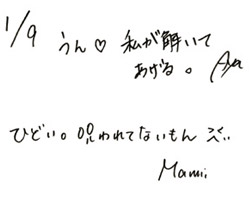 1/9 うん♡ 私が解いて
あげる。 Aya
ひどい。呪われてないもん
Mami.